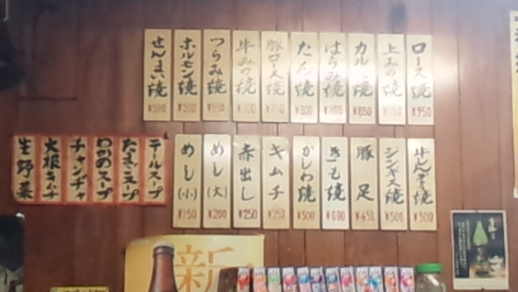 ロース焼 ¥950
上みの焼
カルビ焼 ¥850
はらみ焼
たん焼
豚ロース焼
牛みの焼
つらみ焼
ホルモン焼 ¥500
せんまい焼
牛しんぞう焼 ¥500
ジンギス焼 ¥500
豚足 ¥450
きも焼 ¥600
かしわ焼 ¥500
キムチ ¥350
赤出し ¥250
めし(大) ¥200
めし(小) ¥150
テールスープ
たまごスープ
わかめスープ
チャンヂャ
大根キムチ
生野菜
新